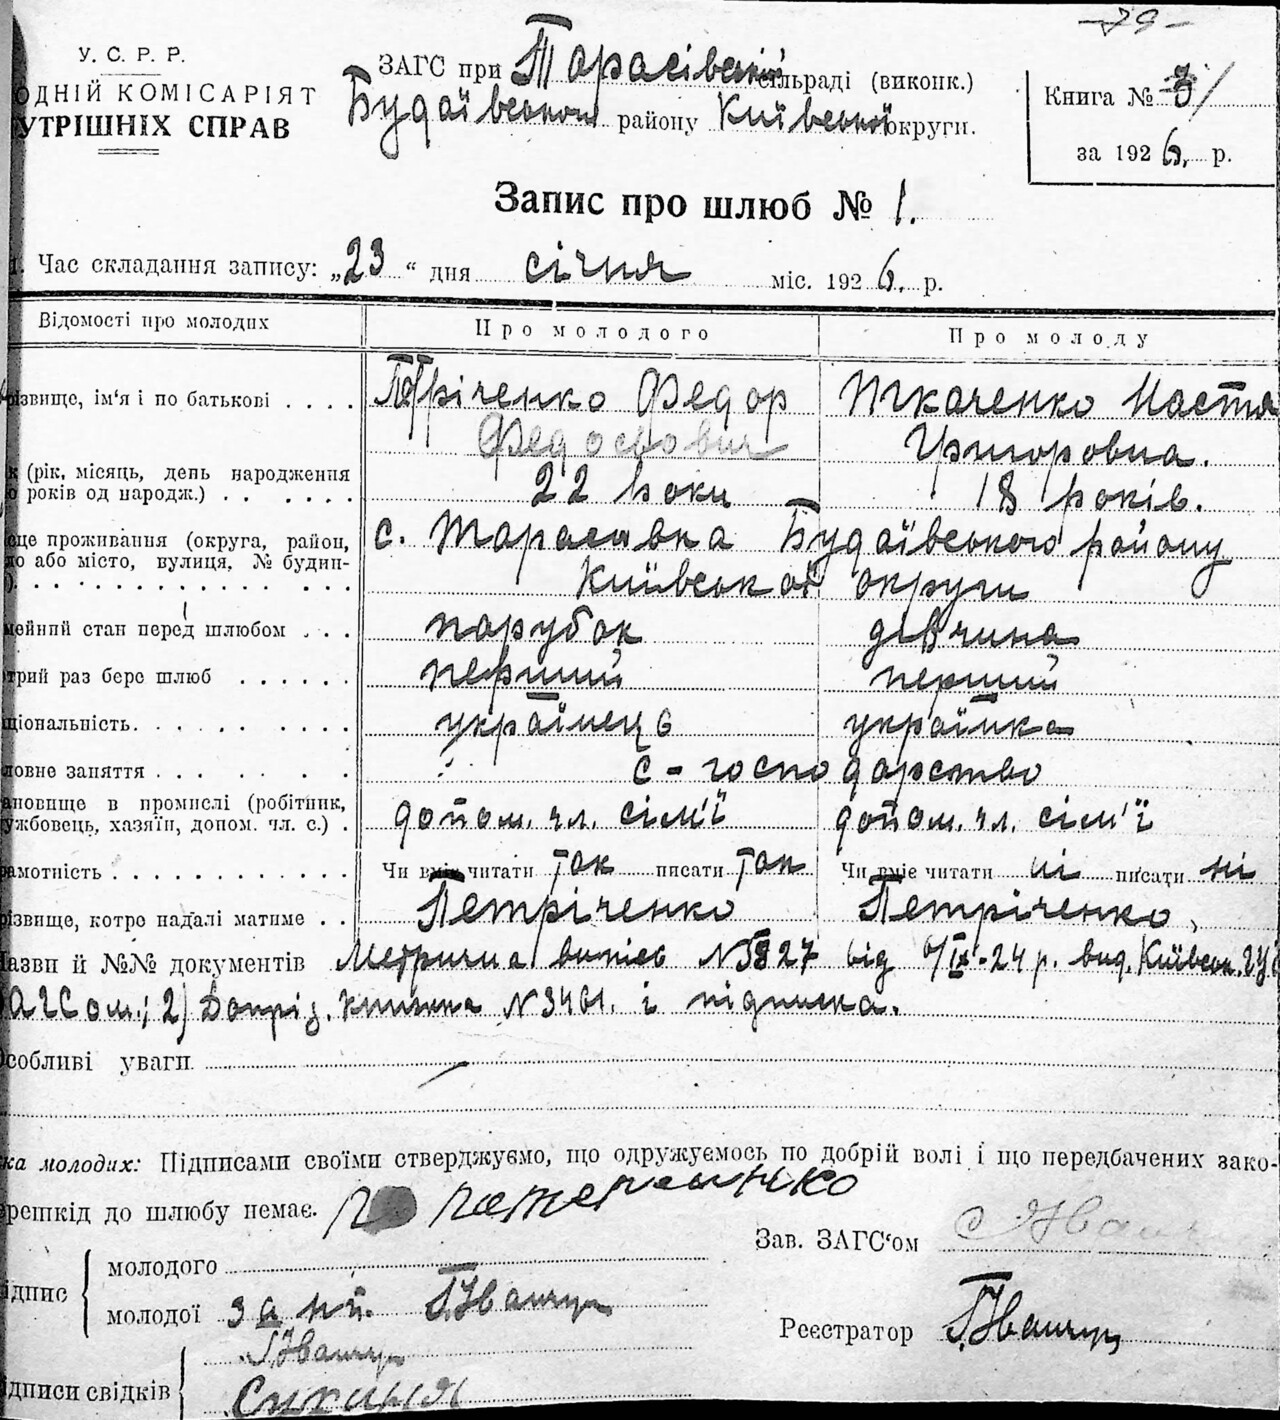 - 79 -
У. С. Р. Р.
ОДНІЙ КОМІСАРІЯТ
УТРІШНІХ СПРАВ
ЗАГС при Тарасівській сільраді (виконк.)
Будаївського району Київської округи.
Книга №
за 1926 р.
Запис про шлюб № 1.
1. Час складання запису: „23“ дня січня міс. 1926. р.
Відомості про молодих Про молодого Про молоду
різвище, ім‘я і по батькові Петріченко Федор Ткаченко Настя
Федосович Григоровна.
к (рік, місяць, день народження
років од народж.) 22 роки 18 років.
сце проживання (округа, район, с. Тарасівка Будаївського району
ло або місто, вулиця, № будин-
) Київської округи
мейний стан перед шлюбом парубок дівчина
трий раз бере шлюб перший перший
ціональність українець українка
ловне заняття с-господарство
ановище в промислі (робітник,
ужбовець, хазяїн, допом. чл. с.) допом. чл. сім'ї допом. чл. сім'ї
рамотність Чи вміє читати так писати так Чи вміє читати ні писати ні
різвище, котре надалі матиме Петріченко Петріченко,
Назви й №№ документів Метрична випись № 5827 від /IX-24 р. вид. Київськ.
ЗАГСом.; 2) Допріз. книжка № 3461. і підписка.
Особливі уваги
ка молодих: Підписами своїми стверджуємо, що одружуємось по добрій волі і що передбачених зако-
ерешкід до шлюбу немає.
Зав. ЗАГС‘ом Іващ
ідпис молодого
молодої за нп. Іващук
Реєстратор Іващук
Іващук
ідписи свідків